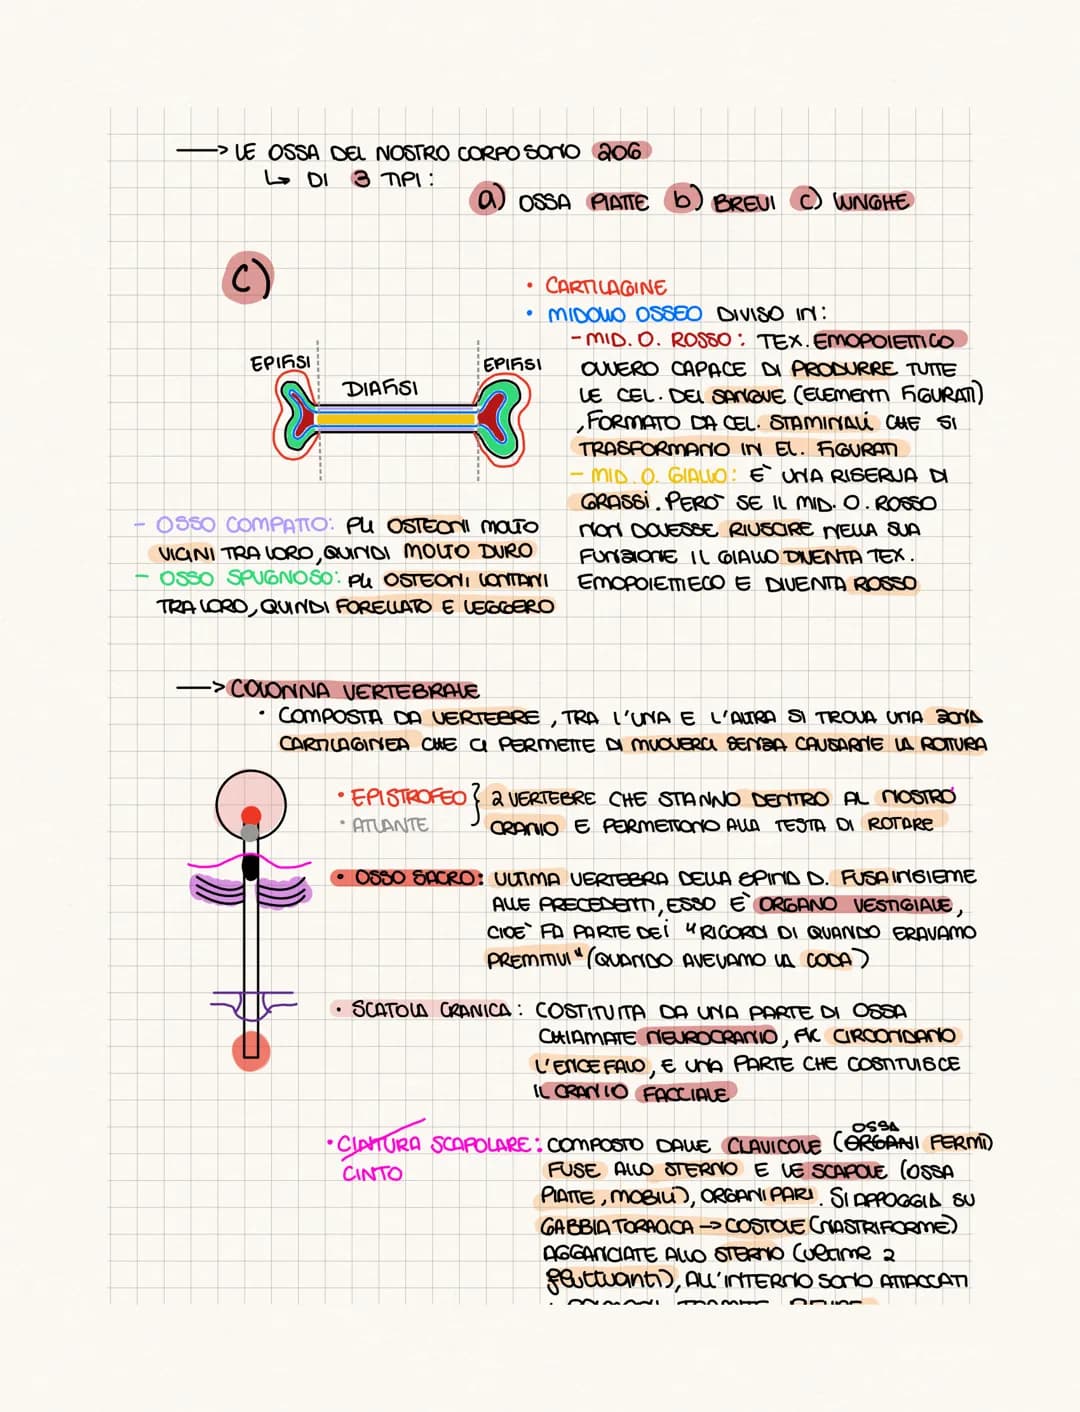 —> LE OSSA DEL NOSTRO CORPO SONO 206
↳ DI 3 TIPI:
a) OSSA PIATTE b) BREVI C) LUNGHE
C)
• CARTILAGINE
• MIDOLLO OSSEO DIVISO IN:
- MID. O. ROSSO: TEX. EMOPOIETICO
OVVERO CAPACE DI PRODURRE TUTTE
LE CEL. DEL SANGUE (ELEMENTI FIGURATI)
, FORMATO DA CEL. STAMINALI CHE SI
TRASFORMANO IN EL. FIGURATI
- MID. O. GIALLO: E` UNA RISERVA DI
GRASSI. PERO` SE IL MID. O. ROSSO
NON DOVESSE RIUSCIRE NELLA SUA
FUNZIONE IL GIALLO DIVENTA TEX.
EMOPOIETIECO E DIVENTA ROSSO
EPIFISI
DIAFISI
EPIFISI
- OSSO COMPATTO: PLI OSTEONI MOLTO
VICINI TRA LORO, QUINDI MOLTO DURO
- OSSO SPUGNOSO: PLI OSTEONI LONTANI
TRA LORO, QUINDI FORELLATO E LEGGERO
—> COLONNA VERTEBRALE
• COMPOSTA DA VERTEBRE, TRA L'UNA E L'ALTRA SI TROVA UNA ZONA
CARTILAGINEA CHE CI PERMETTE DI MUOVERCI SENZA CAUSARNE LA ROTTURA
• EPISTROFEO } 2 VERTEBRE CHE STANNO DENTRO AL NOSTRO
• ATLANTE CRANIO E PERMETTONO ALLA TESTA DI ROTARE
• OSSO SACRO: ULTIMA VERTEBRA DELLA SPINA D. FUSA INSIEME
ALLE PRECEDENTI, ESSO E` ORGANO VESTIGIALE,
CIOE` FA PARTE DEI "RICORDI DI QUANDO ERAVAMO
PREMITIVI" (QUANDO AVEVAMO LA CODA)
• SCATOLA CRANICA: COSTITUITA DA UNA PARTE DI OSSA
CHIAMATE NEUROCRANIO, CIRCONDANO
L'ENCEFALO, E UNA PARTE CHE COSTITUISCE
IL CRANIO FACCIALE
• CINTURA SCAPOLARE: COMPOSTO DALLE CLAVICOLE (ORGANI OSSA FERMI)
CINTO
FUSE ALLO STERNO E LE SCAPOLE (OSSA
PIATTE, MOBILI), ORGANI PARI. SI APPOGGIA SU
GABBIA TORACICA -> COSTOLE (NASTRIFORME)
AGGANCIATE ALLO STERNO (ULTIME 2
fluttuanti), ALL'INTERNO SONO ATTACCATI